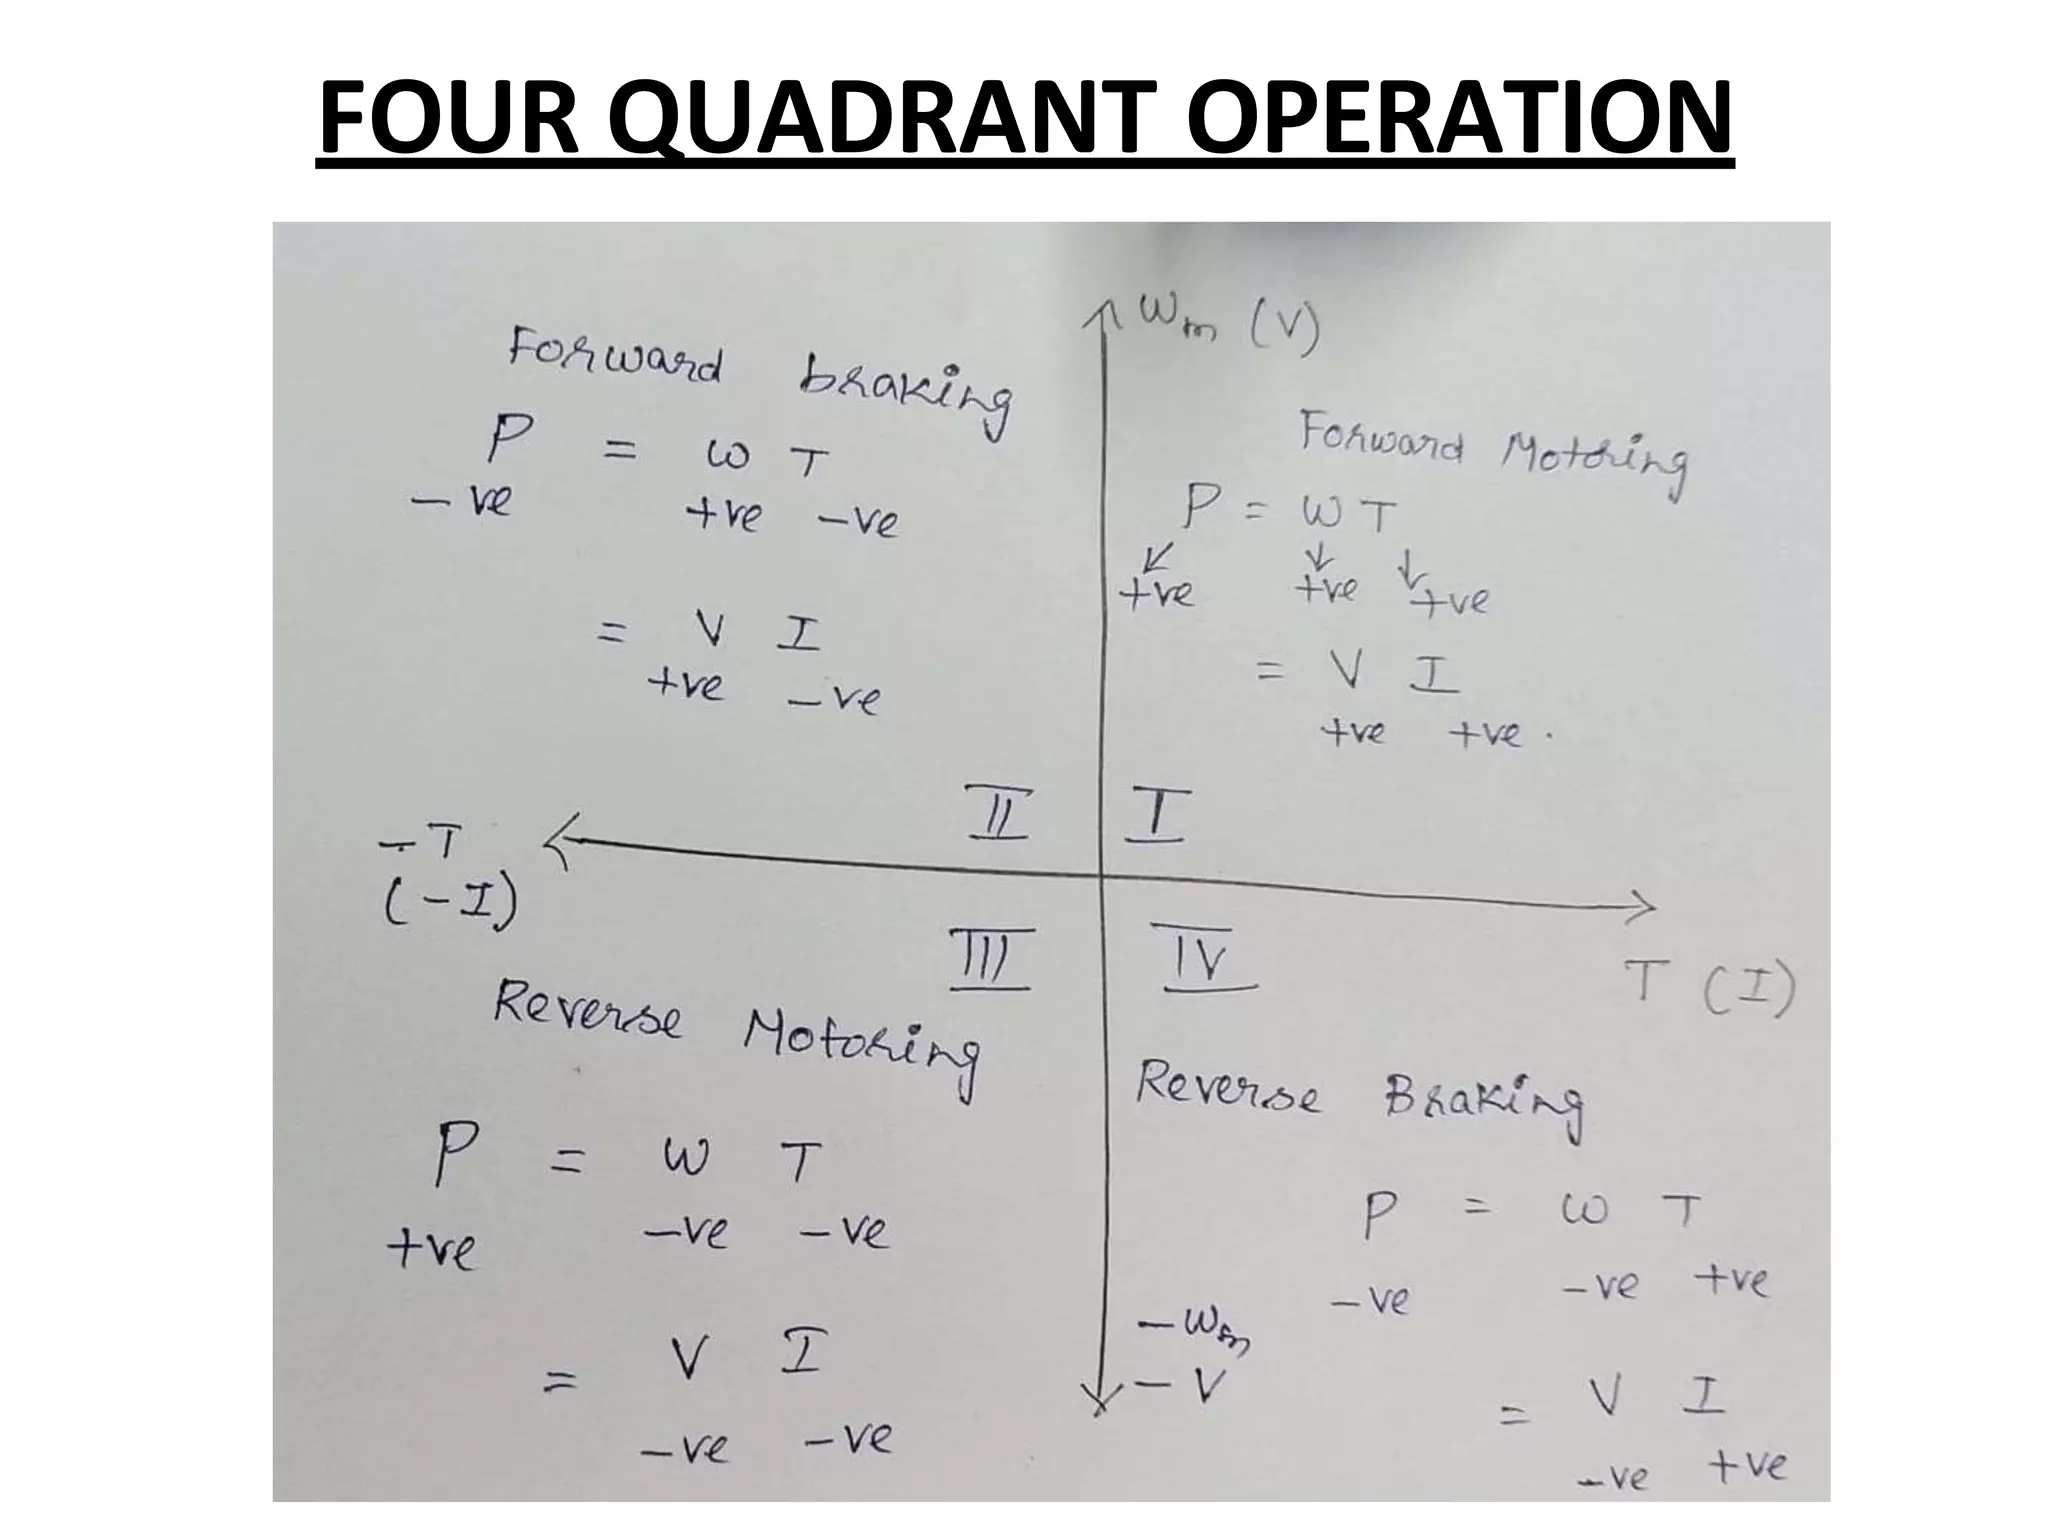 FOUR QUADRANT OPERATION
Wm (V)
Forward braking
P = ω T
-ve +ve -ve
= V I
+ve -ve
Forward Motoring
P = ω T
↙ ↓ ↓
+ve +ve +ve
= V I
+ve +ve.
II I
-T
(-I)
III IV
T (I)
Reverse Motoring
P = ω T
+ve -ve -ve
= V I
-ve -ve
Reverse Braking
P = ω T
-ve -ve +ve
= V I
-ve +ve
-Wm
-V